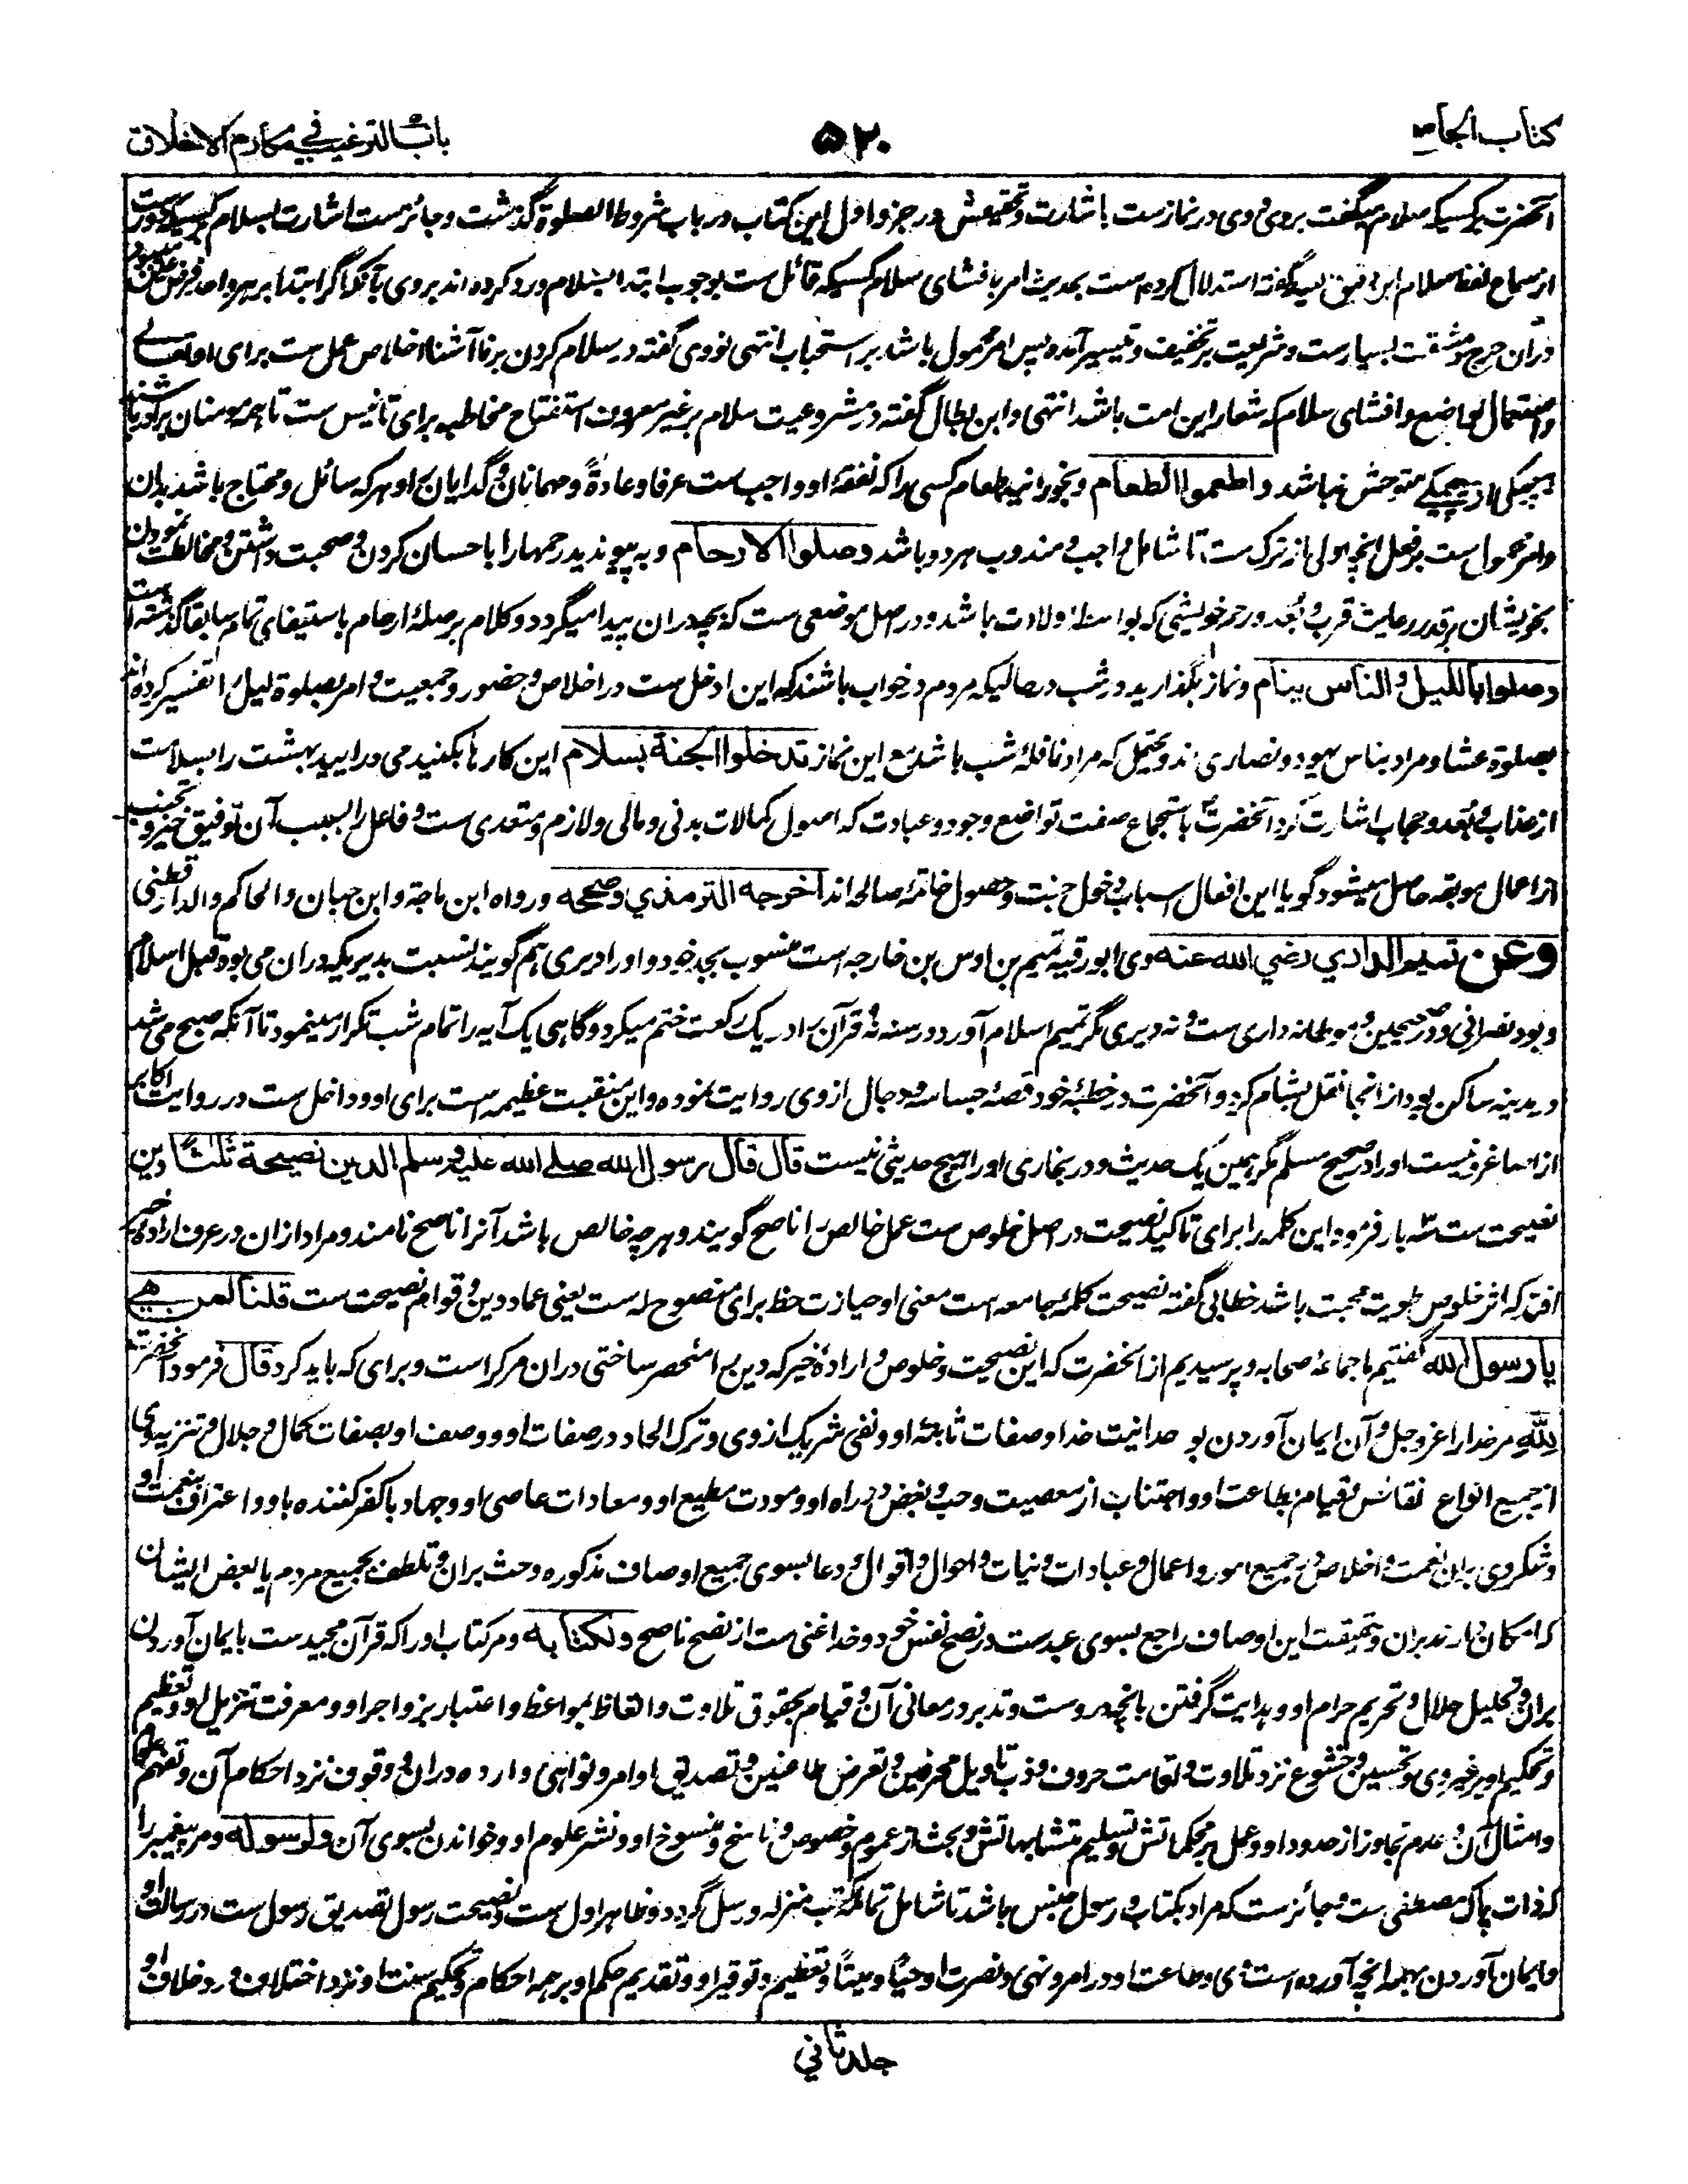 کتاب الجامع
۵۲۰
باب الترغیب فی مکارم الاخلاق
آنحضرت بر کسیکه سلام میگفت بروی و وی در نمازست باشارت و تحقیقش در جزو اول این کتاب در باب شروط الصلوة گذشت و جائزست اشارت بسلام بر کسیکه دورست
از سماع لفظ سلام ابن دقیق العید گفته استدلال کرده ست بحدیث امر بافشای سلام کسیکه قائل ست بوجوب ابتدا بسلام و رد کرده اند بروی بآنکه اگر ابتدا بر هر واحد فرض عین میبود
دران حرج و مشقت بسیارست و شریعت بر تخفیف و تیسیر آمده پس امر محمول باشد بر استحباب انتهی نووی گفته در سلام کردن بر ناآشنا اخلاص عمل ست برای او تعالی
و استعمال تواضع و افشای سلام که شعار این امت باشد انتهی و ابن بطال گفته در مشروعیت سلام بر غیر معروف استفتاح مخاطبه برای تانیس ست تا همه مومنان برادر باشند
هیچیکی از هیچیکے متوحش نباشد و اطعموا الطعام و بخورانید طعام کسی را که نفقهٔ او واجب ست عرفا و عادةً و مهمانان و گدایان را و هر که سائل و محتاج باشد بدان
و امر محمول ست بر فعل انچه اولی باز ترک ست تا شامل واجب و مندوب هر دو باشد وصلوا الارحام و به پیوندید رحمها را باحسان کردن و صحبت داشتن و مخالطت نمودن
بخویشان بر قدر رعایت قرب و بُعد و رحم خویشی که بواسطهٔ ولادت باشد و در اصل موضعی ست که بچه دران پیدا میگردد و کلام بر صلهٔ ارحام باستیفای تمام سابقا گذشته است
وصلوا باللیل والناس ینام و نماز بگذارید در شب در حالیکه مردم در خواب باشند که این ادخل ست در اخلاص و حضور و جمعیت و امر بصلوة لیل را تفسیر کرده اند
بصلوة عشا و مراد بناس یهود و نصاری اند و یحتمل که مراد نافلهٔ شب باشد مع این نماز تدخلوا الجنة بسلام این کارها بکنید می درایید بهشت را بسلامت
از عذاب و بُعد و حجاب اشارت کرد آنحضرت باستجماع صفت تواضع وجود و عبادت که اصول کمالات بدنی و مالی و لازم و متعدی ست و فاعل را بسبب آن توفیق خیر و تجنیب
از اعمال موبقه حاصل میشود گویا این افعال اسباب دخول جنت و حصول خاتمهٔ صالحه اند اخرجه الترمذی وصححه ورواه ابن ماجة وابن حبان والحاکم والدارقطنی
وعن تمیم الداری رضی الله عنه وی ابو رقیه تمیم بن اوس بن خارجه است منسوب بجد خود و او را دیری هم گویند نسبت بدیریکه دران می بود قبل اسلام
و بود نصرانی و در صحیحین و موطا نه داری ست و نه دیری مگر تمیم اسلام آورد در سنه ۹ و قرآن را در یک رکعت ختم میکرد و گاهی یک آیه را تمام شب تکرار مینمود تا آنکه صبح می شد
در مدینه ساکن بود از انجا نقل بشام کرد و آنحضرت در خطبهٔ خود قصهٔ جساسه و دجال از وی روایت نموده و این منقبت عظیمه است برای او و داخل ست در روایت اکابر
از اصاغر و نیست او را در صحیح مسلم مگر همین یک حدیث و در بخاری او را هیچ حدیثی نیست قال قال رسول الله صلی الله علیه وسلم الدین نصیحة ثلثاً دین
نصیحت ست سه بار فرمود این کلمه را برای تاکید نصیحت در اصل خلوص ست عمل خالص را ناصح گویند و هر چه خالص باشد آنرا ناصح نامند و مراد ازان در عرف ارادهٔ خیر
افتد که اثر خلوص طویت و محبت باشد خطابی گفته نصیحت کلمهٔ جامعه است معنی او حیازت حظ برای منصوح له ست یعنی عماد دین و قوام نصیحت ست قلنا لمن هی
یا رسول الله گفتیم ما جماعهٔ صحابه و پرسیدیم از انحضرت که این نصیحت و خلوص و ارادهٔ خیر که دین را منحصر ساختی دران مر کراست و برای که باید کرد قال فرمود آنحضرت
لِلّٰهِ مر خدا را عز و جل و آن ایمان آوردن بوحدانیت خدا و صفات ثابتهٔ او و نفی شریک از وی و ترک الحاد در صفات او و وصف او بصفات کمال و جلال و تنزیه وی
از جمیع انواع نقائص و قیام بطاعت او و اجتناب از معصیت و حب و بغض در راه او و مودت مطیع او و معادات عاصی او و جهاد با کفر کننده باو و اعتراف بنعمت او
و شکر وی بران نعمت و اخلاص در جمیع امور و اعمال و عبادات و نیات و احوال و اقوال و دعا بسوی جمیع اوصاف مذکوره و حث بران و تلطف بجمیع مردم یا بعض ایشان
که امکان دارند بران و حقیقت این اوصاف راجع بسوی عبدست در نصح نفس خود و خدا غنی ست از نصح ناصح ولکتابه و مر کتاب او را که قرآن مجیدست بایمان آوردن
بران و تحلیل حلال و تحریم حرام او و هدایت گرفتن بانچه در وست و تدبر در معانی آن و قیام بحقوق تلاوت و اتعاظ بمواعظ و اعتبار بزواجر او و معرفت تنزیل او و تعظیم
و تحکیم او بر غیر وی و تحسین و خشوع نزد تلاوت و اقامت حروف و ذب تاویل محرفین و تعرض طاعنین و تصدیق اوامر و نواهی وارده دران و وقوف نزد احکام آن و تفهم علوم
و امثال آن و عدم تجاوز از حدود او و عمل بر محکماتش و تسلیم متشابهاتش و بحث از عموم و خصوص و ناسخ و منسوخ او و نشر علوم او و خواندن بسوی آن ولرسوله و مر پیغمبر را
که ذات پاک مصطفی ست و جائزست که مراد بکتاب و رسول جنس باشد تا شامل تمام کتب منزله و رسل گردد و ظاهر اول ست و نصیحت رسول تصدیق رسول ست در رسالت او
و ایمان آوردن بهمه انچه آورده است وی و طاعت او در امر و نهی و نصرت او حیًّا و میتًا و تعظیم و توقیر او و تقدیم حکم او بر همه احکام و تحکیم سنت او نزد اختلاف و رد خلاف او
جلد ثانی